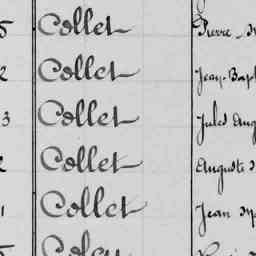 5 Collet Pierre
2 Collet Jean-Bap
3 Collet Jules Aug
2 Collet Auguste
1 Collet Jean